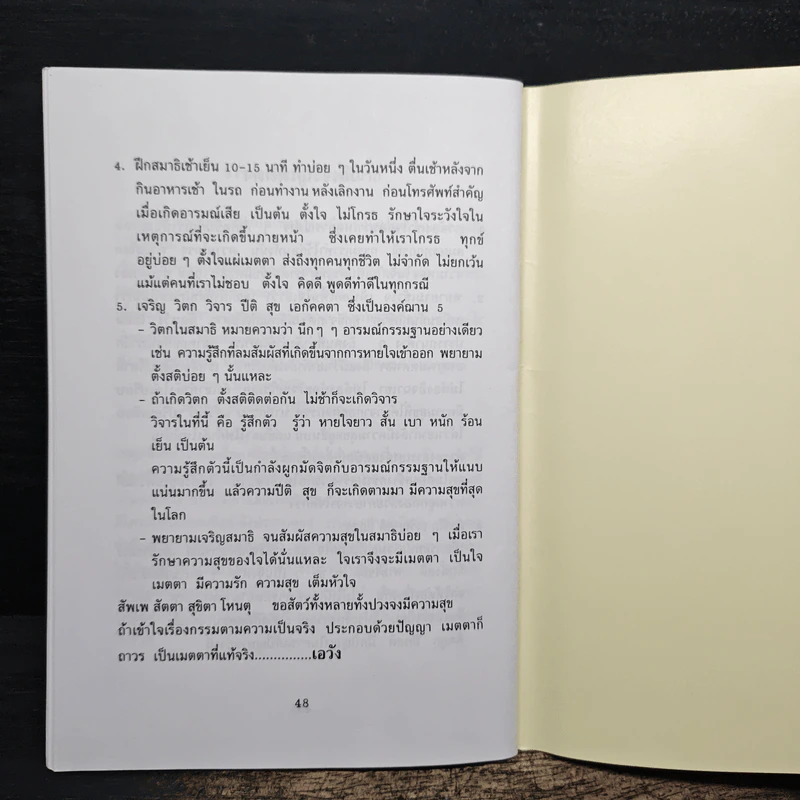 4. ฝึกสมาธิเช้าเย็น 10-15 นาที ทำบ่อย ๆ ในวันหนึ่ง ตื่นเช้าหลังจาก
กินอาหารเช้า ในรถ ก่อนทำงาน หลังเลิกงาน ก่อนโทรศัพท์สำคัญ
เมื่อเกิดอารมณ์เสีย เป็นต้น ตั้งใจ ไม่โกรธ รักษาใจระวังใจใน
เหตุการณ์ที่จะเกิดขึ้นภายหน้า ซึ่งเคยทำให้เราโกรธ ทุกข์
อยู่บ่อย ๆ ตั้งใจแผ่เมตตา ส่งถึงทุกคนทุกชีวิต ไม่จำกัด ไม่ยกเว้น
แม้แต่คนที่เราไม่ชอบ ตั้งใจ คิดดี พูดดีทำดีในทุกกรณี
5. เจริญ วิตก วิจาร ปีติ สุข เอกัคคตา ซึ่งเป็นองค์ฌาน 5
- วิตกในสมาธิ หมายความว่า นึก ๆ ๆ อารมณ์กรรมฐานอย่างเดียว
เช่น ความรู้สึกที่ลมสัมผัสที่เกิดขึ้นจากการหายใจเข้าออก พยายาม
ตั้งสติบ่อย ๆ นั้นแหละ
- ถ้าเกิดวิตก ตั้งสติติดต่อกัน ไม่ช้าก็จะเกิดวิจาร
วิจารในที่นี้ คือ รู้สึกตัว รู้ว่า หายใจยาว สั้น เบา หนัก ร้อน
เย็น เป็นต้น
ความรู้สึกตัวนี้เป็นกำลังผูกมัดจิตกับอารมณ์กรรมฐานให้แนบ
แน่นมากขึ้น แล้วความปีติ สุข ก็จะเกิดตามมา มีความสุขที่สุด
ในโลก
- พยายามเจริญสมาธิ จนสัมผัสความสุขในสมาธิบ่อย ๆ เมื่อเรา
รักษาความสุขของใจได้นั่นแหละ ใจเราจึงจะมีเมตตา เป็นใจ
เมตตา มีความรัก ความสุข เต็มหัวใจ
สัพเพ สัตตา สุขิตา โหนตุ ขอสัตว์ทั้งหลายทั้งปวงจงมีความสุข
ถ้าเข้าใจเรื่องกรรมตามความเป็นจริง ประกอบด้วยปัญญา เมตตาก็
ถาวร เป็นเมตตาที่แท้จริง...............เอวัง
48